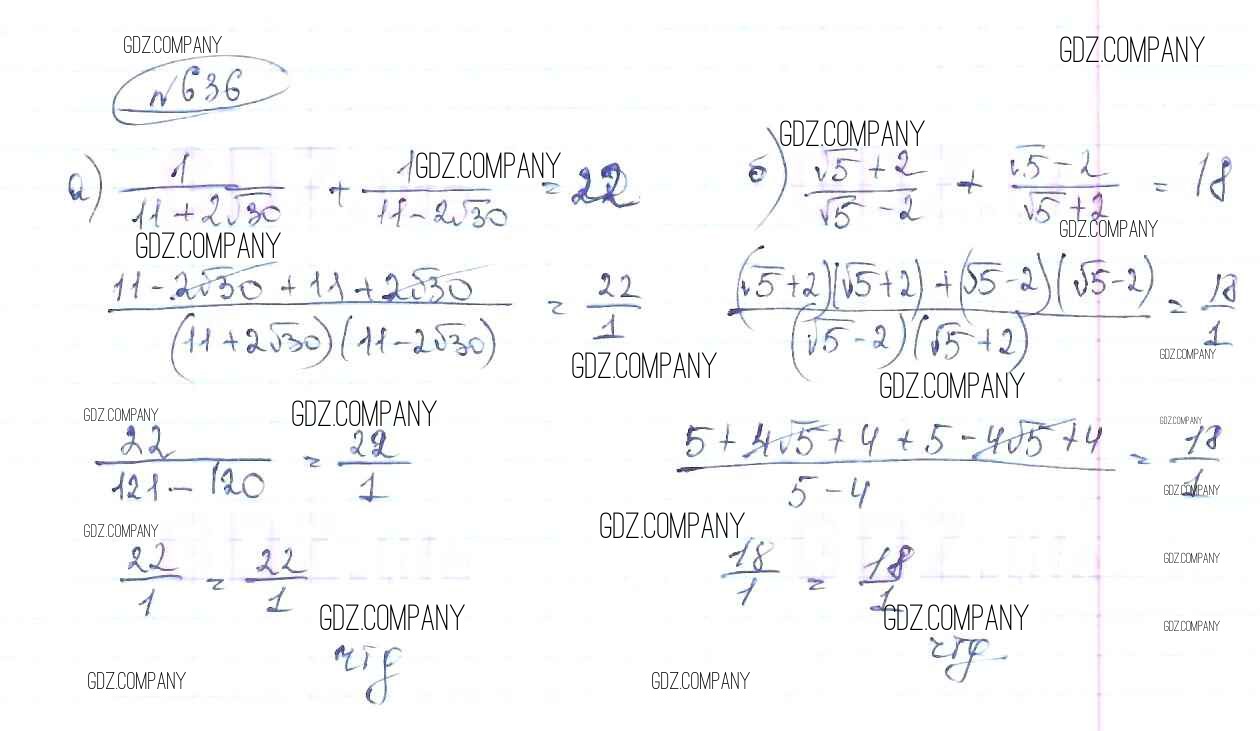 GDZ.COMPANY
GDZ.COMPANY
№636
GDZ.COMPANY
а) 1/(11+2√30) + 1/(11-2√30) = 22
GDZ.COMPANY
б) (√5+2)/(√5-2) + (√5-2)/(√5+2) = 18
GDZ.COMPANY
GDZ.COMPANY
(11-2√30+11+2√30)/((11+2√30)(11-2√30)) = 22/1
((√5+2)(√5+2)+(√5-2)(√5-2))/((√5-2)(√5+2)) = 18/1
GDZ.COMPANY
GDZ.COMPANY
GDZ.COMPANY
GDZ.COMPANY
GDZ.COMPANY
GDZ.COMPANY
22/(121-120) = 22/1
(5+4√5+4+5-4√5+4)/(5-4) = 18/1
GDZ.COMPANY
GDZ.COMPANY
GDZ.COMPANY
GDZ.COMPANY
22/1 = 22/1
18/1 = 18/1
GDZ.COMPANY
GDZ.COMPANY
GDZ.COMPANY
чтд
чтд
GDZ.COMPANY
GDZ.COMPANY